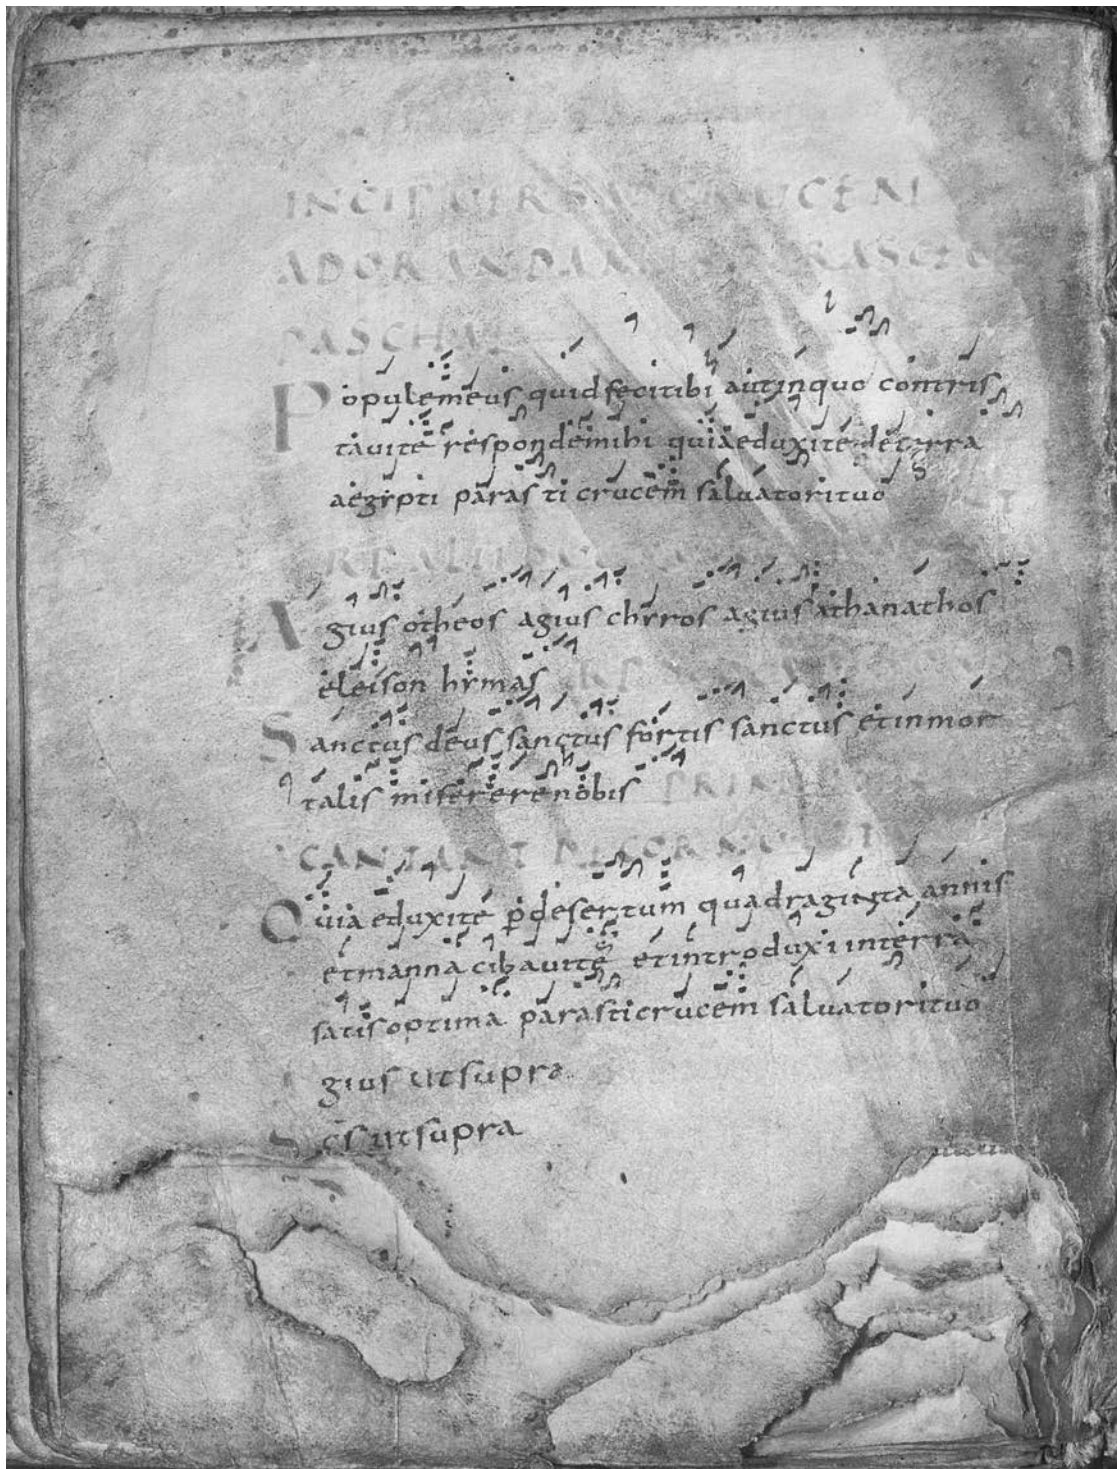 INCIP VERS CRUCEM
ADORANDAM
PASCHAE
Popule meus quid feci tibi aut in quo contris
tavi te responde mihi quia eduxi te de terra
aegypti parasti crucem salvatori tuo
Agius otheos agius chyros agius athanathos
eleison hymas
Sanctus deus sanctus fortis sanctus et inmor
talis miserere nobis PRIM
CANTANT
Quia eduxi te p desertum quadraginta annis
et manna cibavi te et introduxi in terra
satis optima parasti crucem salvatori tuo
gius ut supra
Scs ut supra